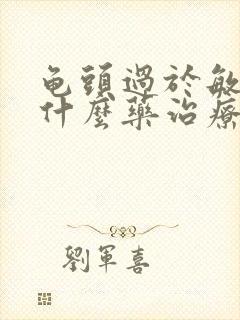 龟頭過於敏
什麼藥治療
劉軍喜